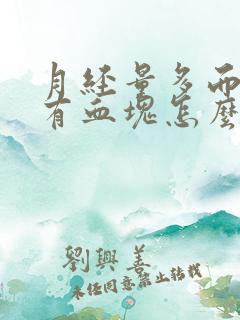 月經量多而
有血塊怎麼
劉興善
未经同意禁止转载